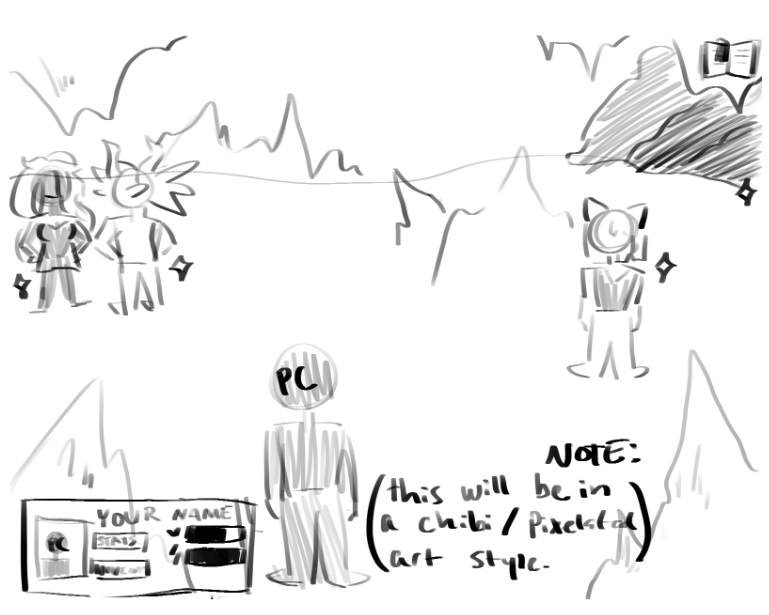 PC
NOTE:
(this will be in
a chibi / pixelated
art style.)
YOUR NAME
PC
STATS